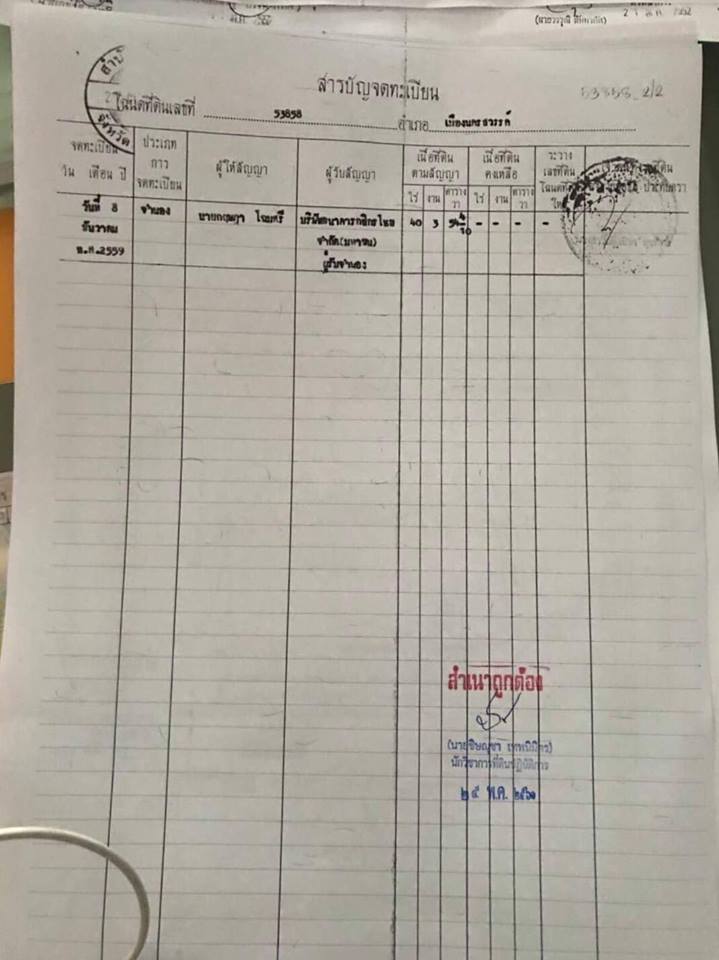 สารบัญจดทะเบียน
53858_2/2
โฉนดที่ดินเลขที่ 53858 อำเภอ เมืองนครสวรรค์
จดทะเบียน
วัน เดือน ปี
ประเภท
การ
จดทะเบียน
ผู้ให้สัญญา
ผู้รับสัญญา
เนื้อที่ดิน
ตามสัญญา
ไร่ งาน ตารางวา
เนื้อที่ดิน
คงเหลือ
ไร่ งาน ตารางวา
ระวาง
เลขที่ดิน
โฉนดที่ดิน
ใหม่
วันที่ 8 จำนอง บริษัทธนาคารกสิกรไทย 40 3 54 4/10 - - - -
ธันวาคม จำกัด(มหาชน)
พ.ศ.2559 ผู้รับจำนอง
สำเนาถูกต้อง
นักวิชาการที่ดินปฏิบัติการ
๒๕ พ.ค. ๒๕๖๐